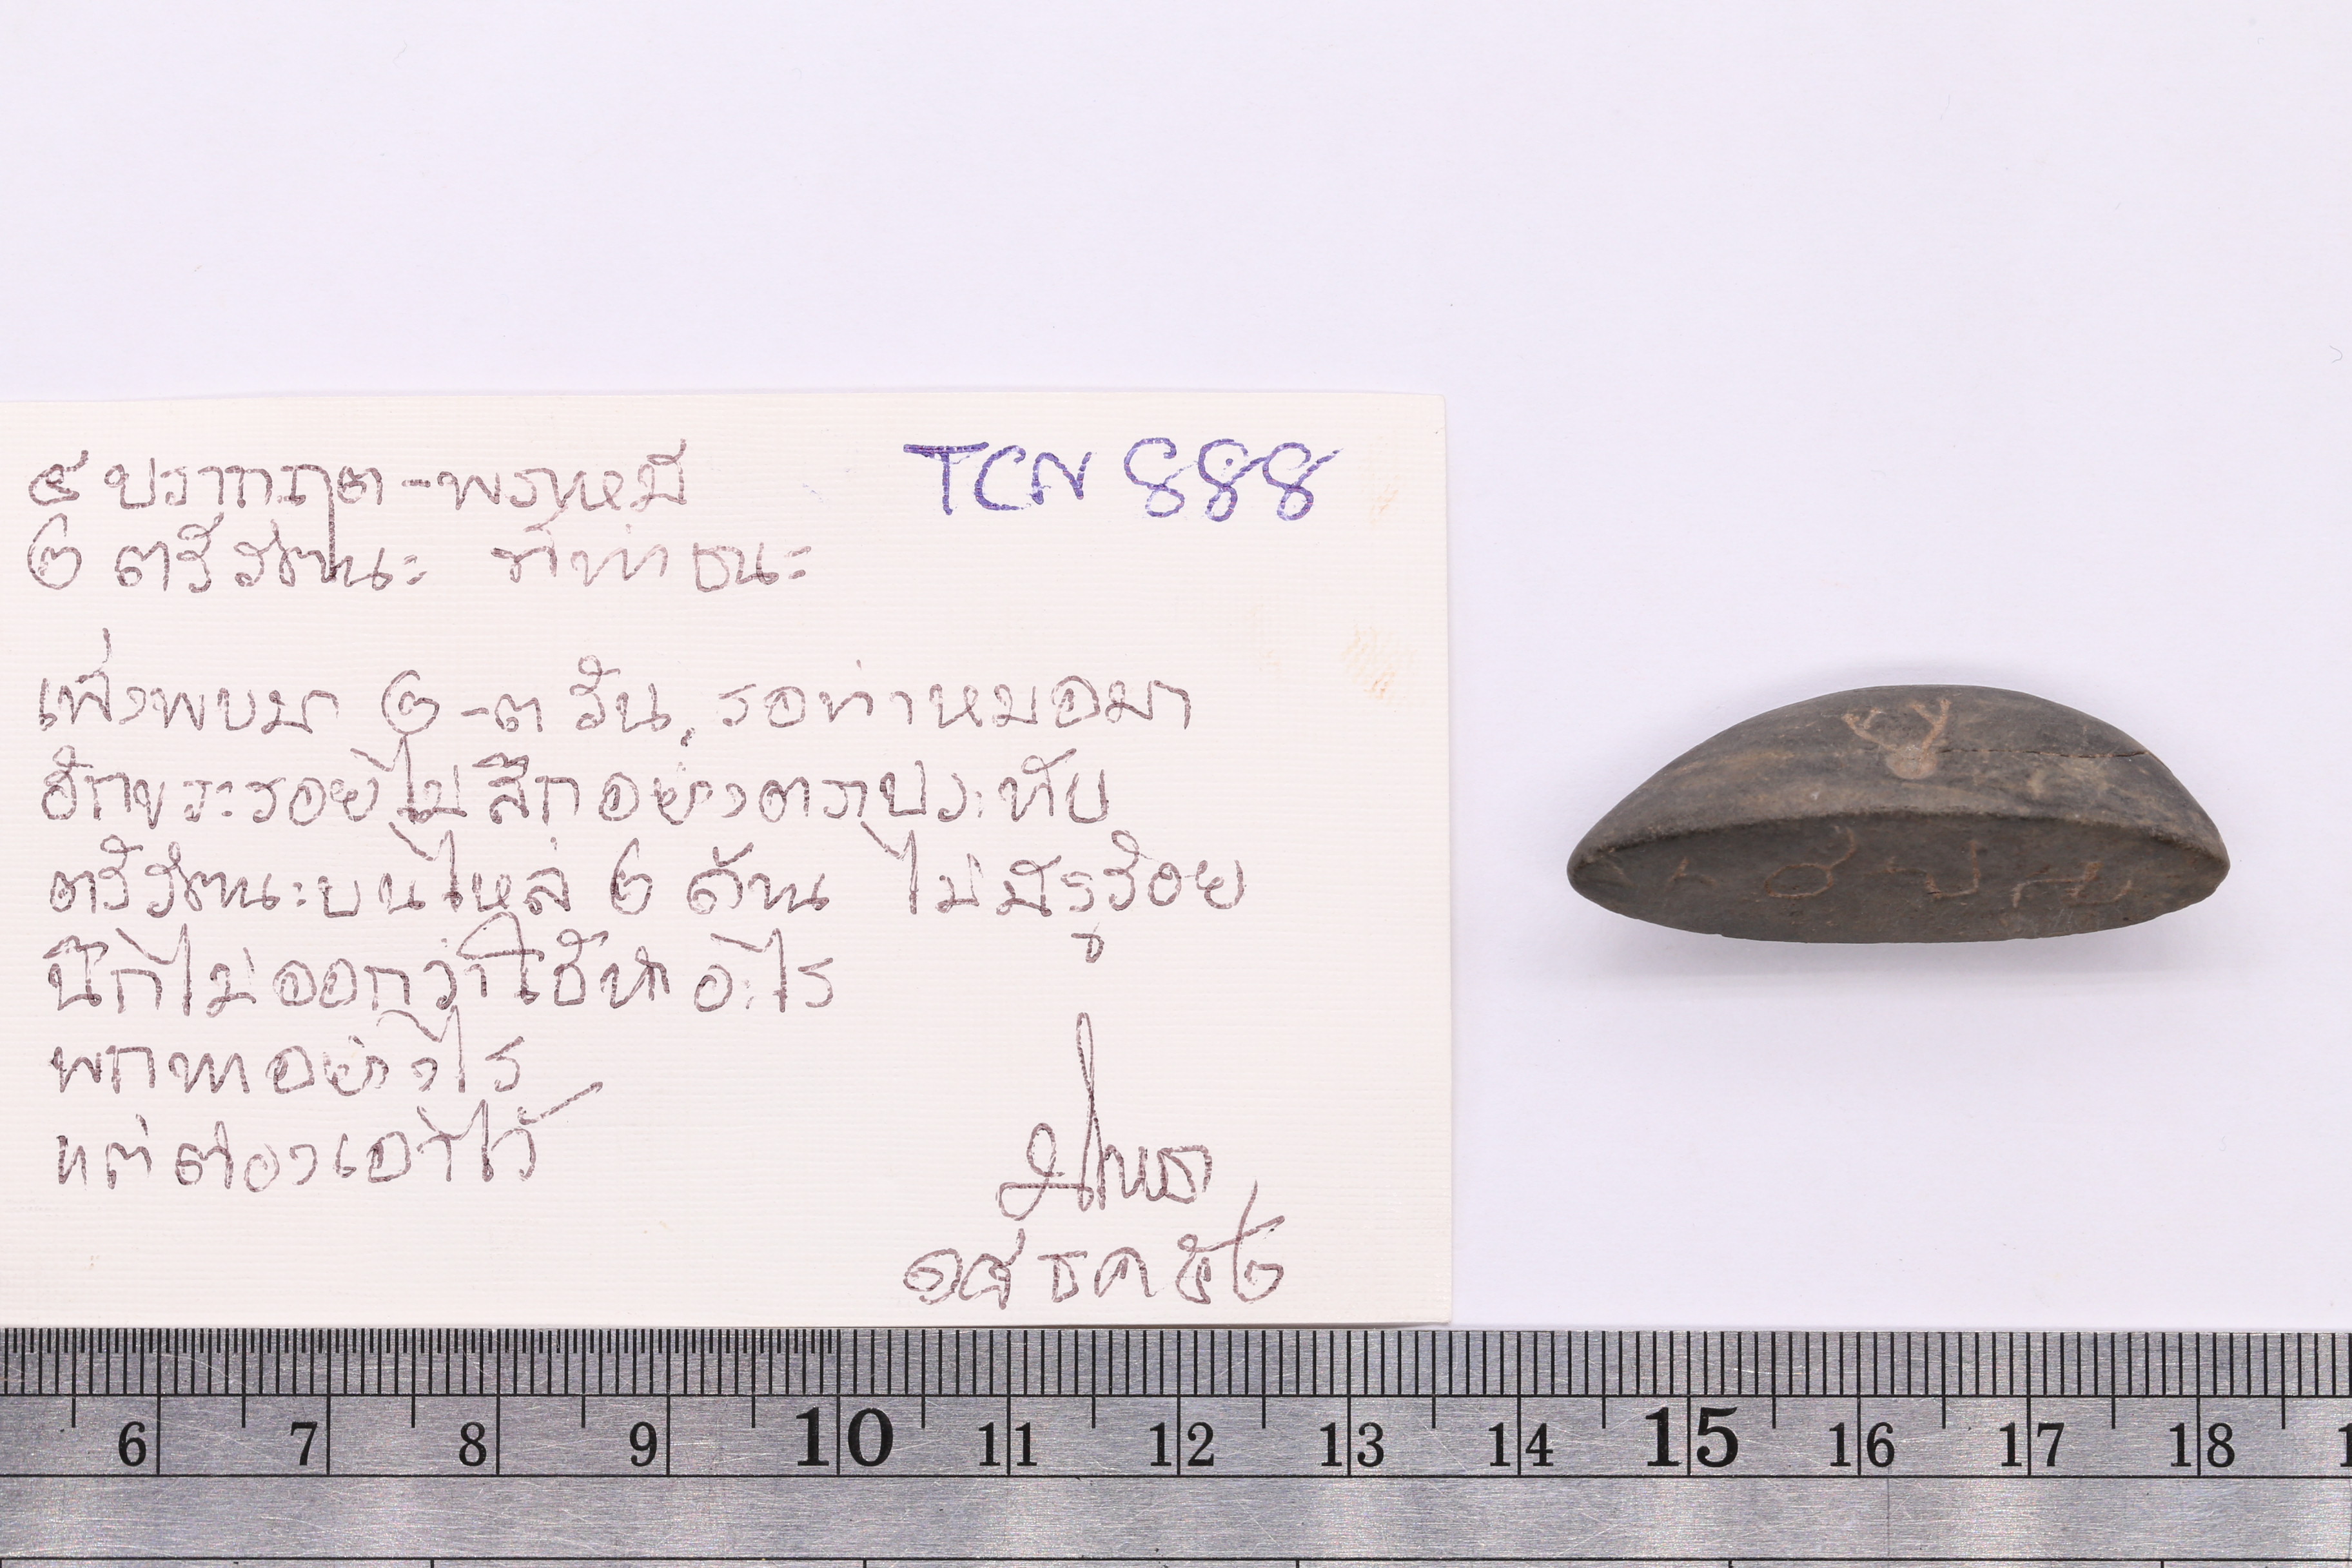 ๕ ปรากฤต-พรหมี
TCN 888
๒ ตรีรัตนะ ที่ท่าชนะ
เพิ่งพบมา ๒-๓ วัน, รอท่าหมอมา
อักขระรอยไม่ลึกอย่างตราประทับ
ตรีรัตนะบนไหล่ ๒ ด้าน ไม่มีรูร้อย
นึกไม่ออกว่าใช้ทำอะไร
พกพาอย่างไร
แต่ต้องเอาไว้
๑๕ ธค ๕๒
6 7 8 9 10 11 12 13 14 15 16 17 18